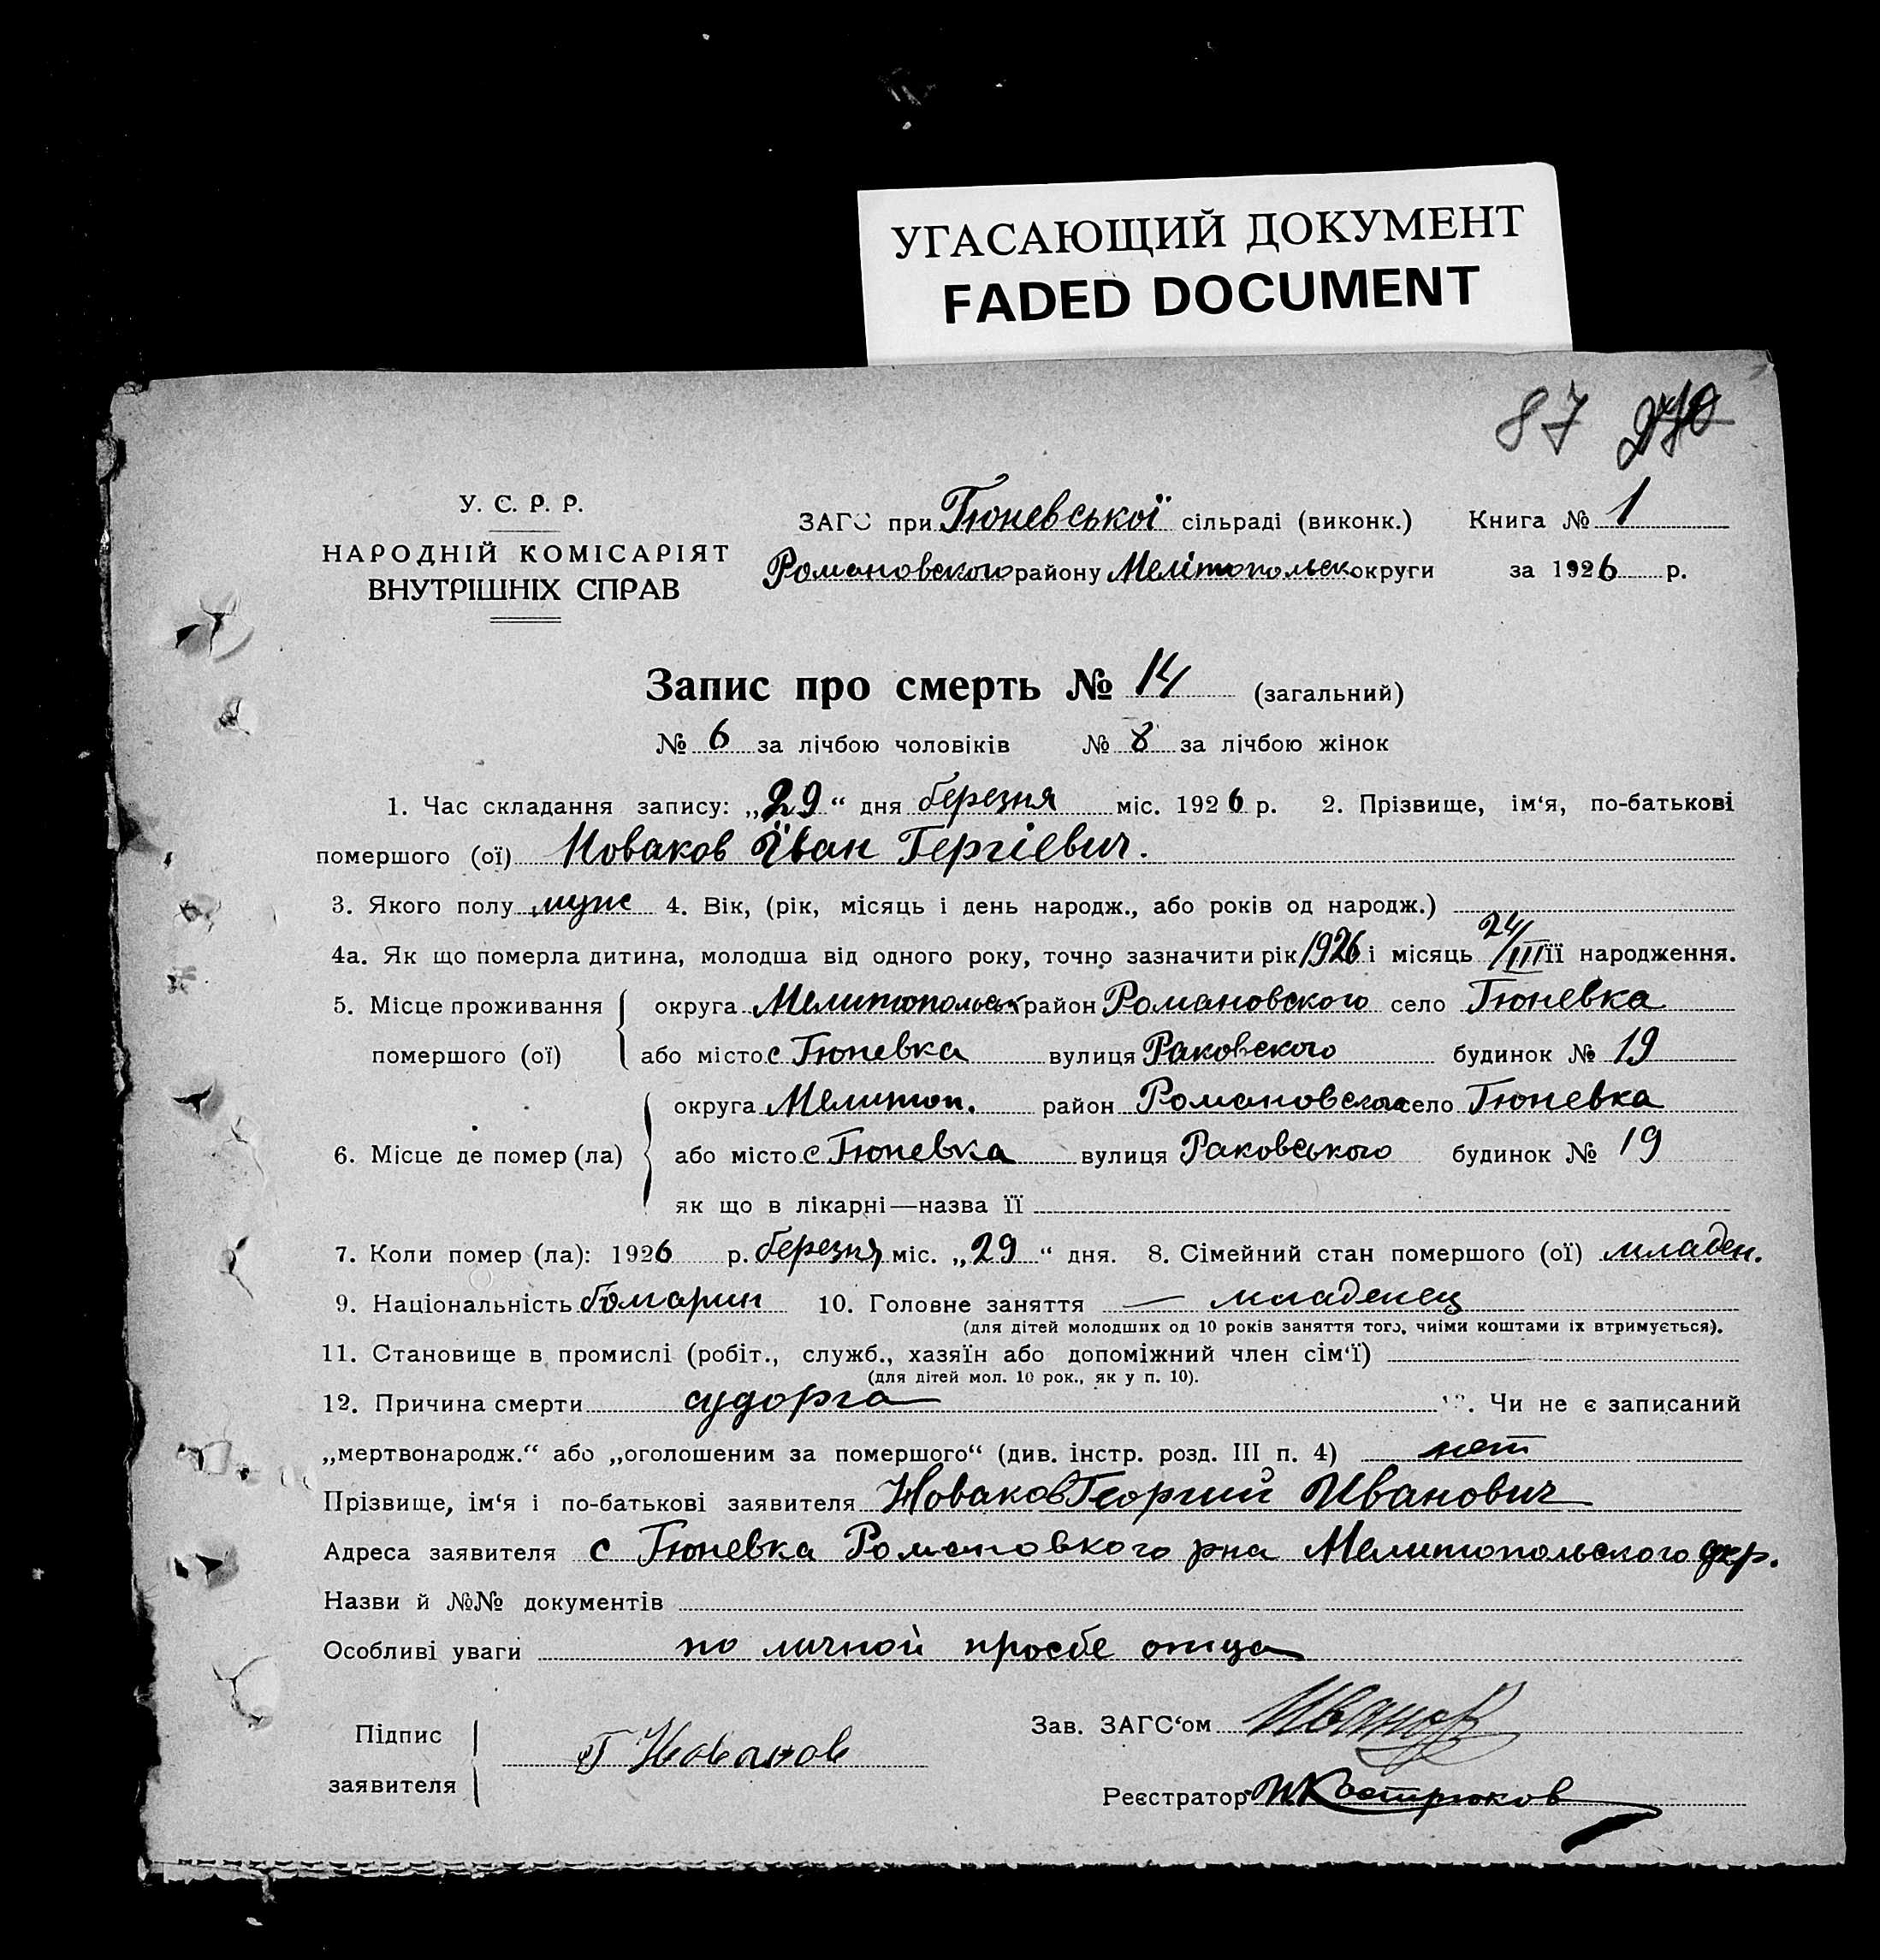 УГАСАЮЩИЙ ДОКУМЕНТ
FADED DOCUMENT
87 270
У. С. Р. Р.
НАРОДНІЙ КОМІСАРІЯТ
ВНУТРІШНІХ СПРАВ
ЗАГС при Гюневської сільраді (виконк.) Книга № 1
Романовского району Мелітопольск округи за 1926 р.
Запис про смерть № 14 (загальний)
№ 6 за лічбою чоловіків № 8 за лічбою жінок
1. Час складання запису: „29“ дня березня міс. 1926 р. 2. Прізвище, ім‘я, по-батькові
помершого (ої) Новаков Їван Гергіевич.
3. Якого полу муж 4. Вік, (рік, місяць і день народж., або років од народж.)
4а. Як що померла дитина, молодша від одного року, точно зазначити рік 1926 і місяць 24/III її народження.
5. Місце проживання помершого (ої) округа Мелитопольск район Романовского село Гюневка
або місто с Гюневка вулиця Раковского будинок № 19
6. Місце де помер (ла) округа Мелитоп. район Романовского село Гюневка
або місто с Гюневка вулиця Раковського будинок № 19
як що в лікарні—назва її
7. Коли помер (ла): 1926 р. березня міс. „29“ дня. 8. Сімейний стан помершого (ої) младен.
9. Національність болгарин 10. Головне заняття — младенец
(для дітей молодших од 10 років заняття того, чиїми коштами їх втримується).
11. Становище в промислі (робіт., служб., хазяїн або допоміжний член сім‘ї)
(для дітей мол. 10 рок., як у п. 10).
12. Причина смерти судорга 13. Чи не є записаний
„мертвонародж.“ або „оголошеним за помершого“ (див. інстр. розд. III п. 4) нет
Прізвище, ім‘я і по-батькові заявителя Новаков Георгий Иванович
Адреса заявителя с Гюневка Романовкого рна Мелитопольского окр.
Назви й №№ документів
Особливі уваги по личной просбе отца
Підпис заявителя Г Новаков
Зав. ЗАГС‘ом Иванов
Реєстратор Кострюков